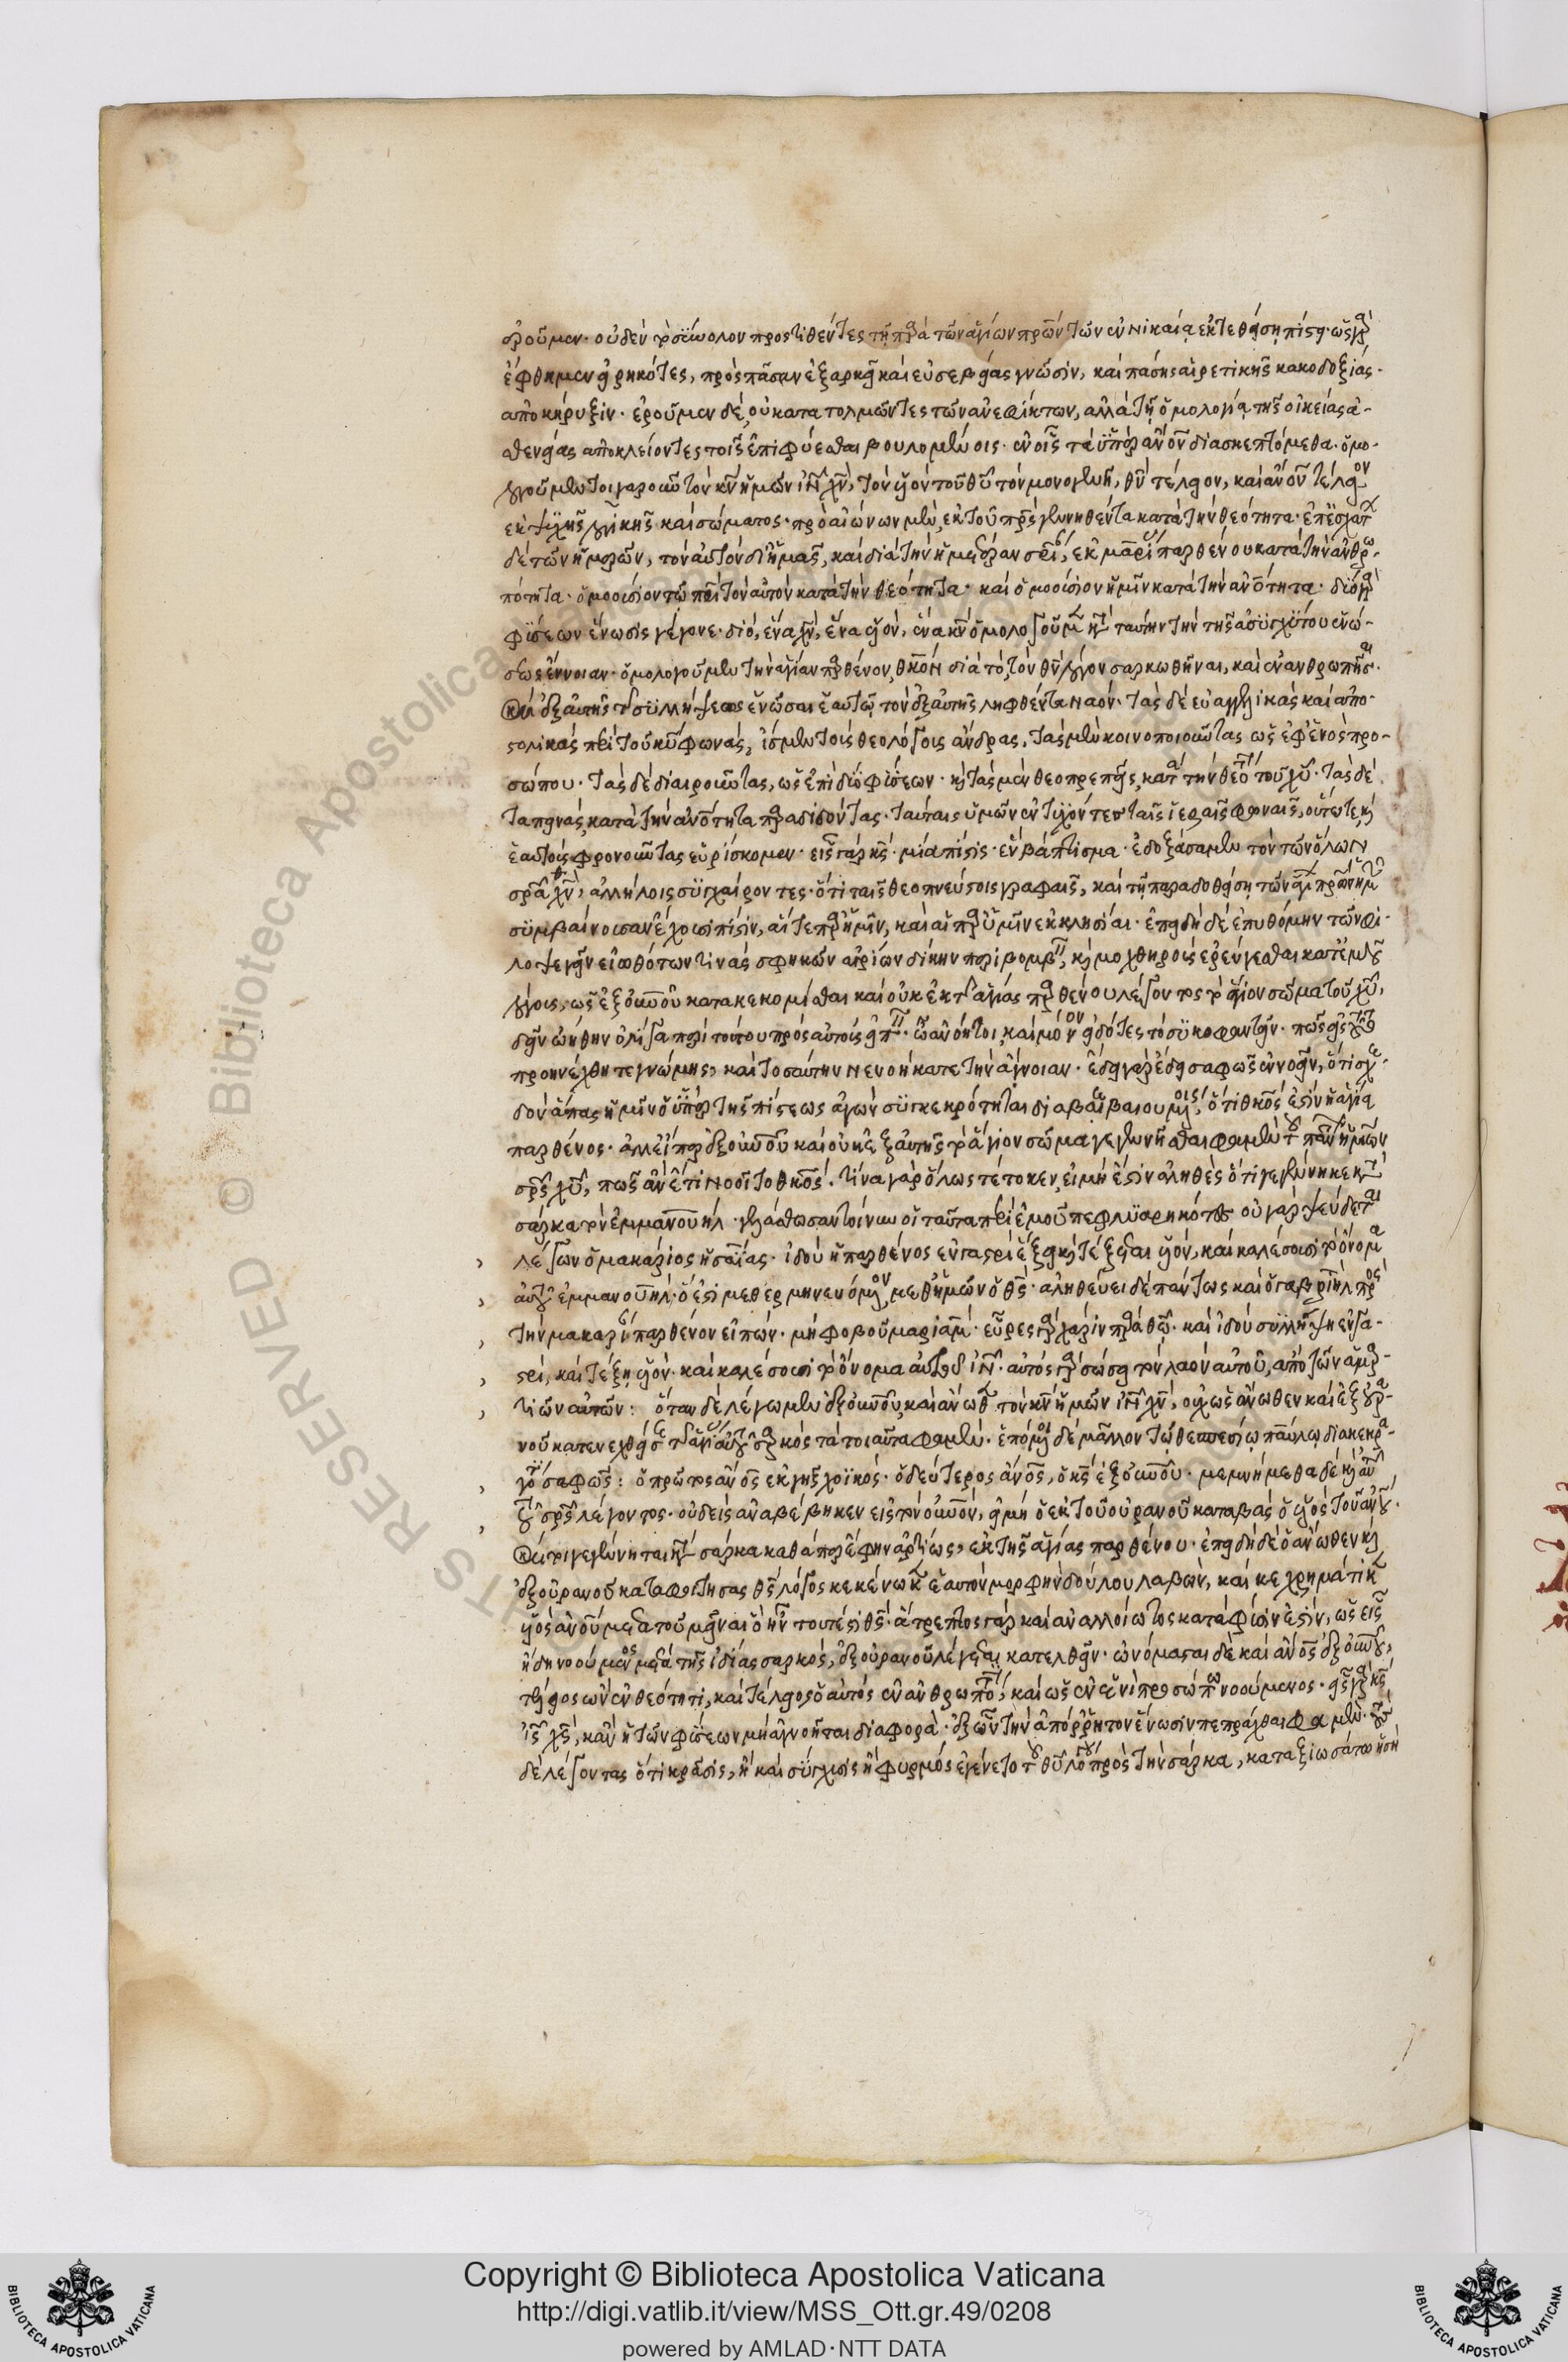 ροῦμεν· οὐδὲν τὸ σύνολον προστιθέντες τῇ παρὰ τῶν ἁγίων πρων τῶν ἐν νικαίᾳ ἐκτεθείσῃ πίστει· ὡς γὰρ
ἔφθημεν εἰρηκότες, πρὸς πᾶσαν ἐξαρκεῖ καὶ εὐσεβείας γνῶσιν, καὶ πάσης αἱρετικῆς κακοδοξίας·
ἀποκήρυξιν· ἐροῦμεν δέ, οὐ κατατολμῶντες τῶν ἀνεφίκτων, ἀλλὰ τῇ ὁμολογίᾳ τῆς οἰκείας ἀ-
σθενείας ἀποκλείοντες τοῖς ἐπιφύεσθαι βουλομένοις· ἐν οἷς τὰ ὑπὲρ ἄνον διασκεπτόμεθα· ὁμο-
λογοῦμεν τοιγαροῦν τὸν κν ἡμῶν ιν χν, τὸν υἱὸν τοῦ θυ τὸν μονογενῆ, θν τέλειον, καὶ ἄνον τέλειον
ἐκ ψυχῆς λογικῆς καὶ σώματος· πρὸ αἰώνων μὲν, ἐκ τοῦ πρς γεννηθέντα κατὰ τὴν θεότητα· ἐπ' ἐσχάτων
δὲ τῶν ἡμερῶν, τὸν αὐτὸν δι' ἡμᾶς, καὶ διὰ τὴν ἡμετέραν σρίαν, ἐκ μαρίας παρθένου κατὰ τὴν ἀνθρω-
πότητα· ὁμοούσιον τῷ πρὶ τὸν αὐτὸν κατὰ τὴν θεότητα· καὶ ὁμοούσιον ἡμῖν κατὰ τὴν ἀνότητα· δύο γὰρ
φύσεων ἕνωσις γέγονε· διό, ἕνα χν, ἕνα υἱὸν, ἕνα κν ὁμολογοῦμεν κατὰ ταύτην τὴν τῆς ἀσυγχύτου ἑνώ-
σεως ἔννοιαν· ὁμολογοῦμεν τὴν ἁγίαν παρθένον, θκον διὰ τὸ, τὸν θν λόγον σαρκωθῆναι, καὶ ἐνανθρωπῆσαι·
καὶ ἐξ αὐτῆς τῆς συλλήψεως ἑνῶσαι ἑαυτῷ τὸν ἐξ αὐτῆς ληφθέντα ναόν· τὰς δὲ εὐαγγελικὰς καὶ ἀπο-
στολικὰς περὶ τοῦ κυ φωνάς, ἴσμεν τοὺς θεολόγους ἄνδρας, τὰς μὲν κοινοποιοῦντας ὡς ἐφ' ἑνὸς προ-
σώπου· τὰς δὲ διαιροῦντας, ὡς ἐπὶ δύο φύσεων· καὶ τὰς μὲν θεοπρεπεῖς, κατὰ τὴν θεότητα τοῦ χυ· τὰς δὲ
ταπεινάς, κατὰ τὴν ἀνότητα παραδιδόντας· ταύταις ὑμῶν ἐντυχόντες ταῖς ἱεραῖς φωναῖς, οὕτω τε καὶ
ἑαυτοὺς φρονοῦντας εὑρίσκομεν· εἷς γὰρ κς· μία πίστις· ἓν βάπτισμα· ἐδοξάσαμεν τὸν τῶν ὅλων
σρα χν, ἀλλήλοις συγχαίροντες· ὅτι ταῖς θεοπνεύστοις γραφαῖς, καὶ τῇ παραδοθείσῃ τῶν ἁγίων πρων ἡμῶν
συμβαίνουσαν ἔχουσι πίστιν, αἵ τε παρ' ἡμῖν, καὶ αἱ παρ' ὑμῖν ἐκκλησίαι· ἐπειδὴ δὲ ἐπυθόμην τῶν φι-
λοψεγεῖν εἰωθότων τινὰς σφηκῶν ἀγρίων δίκην περιβομβεῖν, καὶ μοχθηροὺς ἐρεύγεσθαι κατ' ἐμοῦ
λόγους, ὡς ἐξ ουνου κατακεκομίσθαι καὶ οὐκ ἐκ τῆς ἁγίας παρθένου λέγοντος τὸ θεῖον σῶμα τοῦ χυ,
δεῖν ᾠήθην ὀλίγα περὶ τούτου πρὸς αὐτοὺς εἰπεῖν· ὦ ἀνόητοι, καὶ μόνον εἰδότες τὸ συκοφαντεῖν· πῶς εἰς τοῦτο
προηνέχθητε γνώμης, καὶ τοσαύτην νενοήκατε τὴν ἄγνοιαν· ἔδει γὰρ ἔδει σαφῶς ἐννοεῖν, ὅτι σχε-
δὸν ἅπας ἡμῖν ὁ ὑπὲρ τῆς πίστεως ἀγὼν συγκεκρότηται διαβεβαιουμένοις, ὅτι θκος ἐστὶν ἡ ἁγία
παρθένος· ἀλλ' εἴπερ ἐξ ουνου καὶ οὐκ ἐξ αὐτῆς τὸ ἅγιον σῶμα γεγεννῆσθαι φαμὲν τοῦ πάντων ἡμῶν
σρς χυ, πῶς ἂν ἔτι νοοῖτο θκος· τίνα γὰρ ὅλως τέτοκεν, εἰ μή ἐστιν ἀληθὲς ὅτι γεγέννηκε κατὰ
σάρκα τὸν ἐμμανουὴλ· γελάσθωσαν τοίνυν οἱ ταῦτα περὶ ἐμοῦ πεφλυαρηκότες· οὐ γὰρ ψεύδεται
λέγων ὁ μακάριος ἡσαΐας· ἰδοὺ ἡ παρθένος ἐν γαστρὶ ἕξει καὶ τέξεται υἱὸν, καὶ καλέσουσι τὸ ὄνομα
αὐτοῦ ἐμμανουὴλ· ὅ ἐστι μεθερμηνευόμενον, μεθ' ἡμῶν ὁ θς· ἀληθεύει δὲ πάντως καὶ ὁ γαβριὴλ πρὸς
τὴν μακαρίαν παρθένον εἰπών· μὴ φοβοῦ μαριάμ· εὗρες γὰρ χάριν παρὰ θῶ· καὶ ἰδοὺ συλλήψῃ ἐν γα-
στρὶ, καὶ τέξῃ υἱὸν· καὶ καλέσουσι τὸ ὄνομα αὐτοῦ ιν· αὐτὸς γὰρ σώσει τὸν λαὸν αὐτοῦ, ἀπὸ τῶν ἁμαρ-
τιῶν αὐτῶν: ὅταν δὲ λέγωμεν ἐξ ουνου, καὶ ἄνωθεν τὸν κν ἡμῶν ιν χν, οὐχ ὡς ἄνωθεν καὶ ἐξ οὐρα-
νοῦ κατενεχθείσης τῆς ἁγίας αὐτοῦ σαρκὸς τὰ τοιαῦτα φαμὲν· ἑπόμενοι δὲ μᾶλλον τῷ θεσπεσίῳ παύλῳ διακεκρα-
γότι σαφῶς: ὁ πρῶτος ἄνος ἐκ γῆς χοϊκός· ὁ δεύτερος ἄνος, ὁ κς ἐξ ουνου· μεμνήμεθα δὲ καὶ αὐ-
τοῦ σρς λέγοντος· οὐδεὶς ἀναβέβηκεν εἰς τὸν ουνον, εἰ μὴ ὁ ἐκ τοῦ οὐρανοῦ καταβὰς ὁ υἱὸς τοῦ ἀνου·
καίτοι γεγέννηται κατὰ σάρκα καθάπερ ἔφην ἀρτίως, ἐκ τῆς ἁγίας παρθένου· ἐπειδὴ δὲ ὁ ἄνωθεν καὶ
ἐξ οὐρανοῦ καταφοιτήσας θς λόγος κεκένωκεν ἑαυτὸν μορφὴν δούλου λαβὼν, καὶ κεχρημάτικεν
υἱὸς ἀνου μετὰ τοῦ μεῖναι ὃ ἦν τουτέστι θς· ἄτρεπτος γὰρ καὶ ἀναλλοίωτος κατὰ φύσιν ἐστὶν, ὡς εἷς
ἤδη νοούμενος μετὰ τῆς ἰδίας σαρκὸς, ἐξ οὐρανοῦ λέγεται κατελθεῖν· ὠνόμασται δὲ καὶ ἄνος ἐξ ουνου,
τέλειος ὢν ἐν θεότητι, καὶ τέλειος ὁ αὐτὸς ἐν ἀνθρωπότητι, καὶ ὡς ἐν ἑνὶ προσώπῳ νοούμενος· εἷς γὰρ κς
ις χς, κἂν ἡ τῶν φύσεων μὴ ἀγνοῆται διαφορὰ· ἐξ ὧν τὴν ἀπόρρητον ἕνωσιν πεπρᾶχθαι φαμὲν· τοὺς
δὲ λέγοντας ὅτι κρᾶσις, ἢ καὶ σύγχυσις ἢ φυρμὸς ἐγένετο τοῦ θυ λόγου πρὸς τὴν σάρκα, καταξιωσάτω ἡ σὴ
Copyright © Biblioteca Apostolica Vaticana
http://digi.vatlib.it/view/MSS_Ott.gr.49/0208
powered by AMLAD·NTT DATA